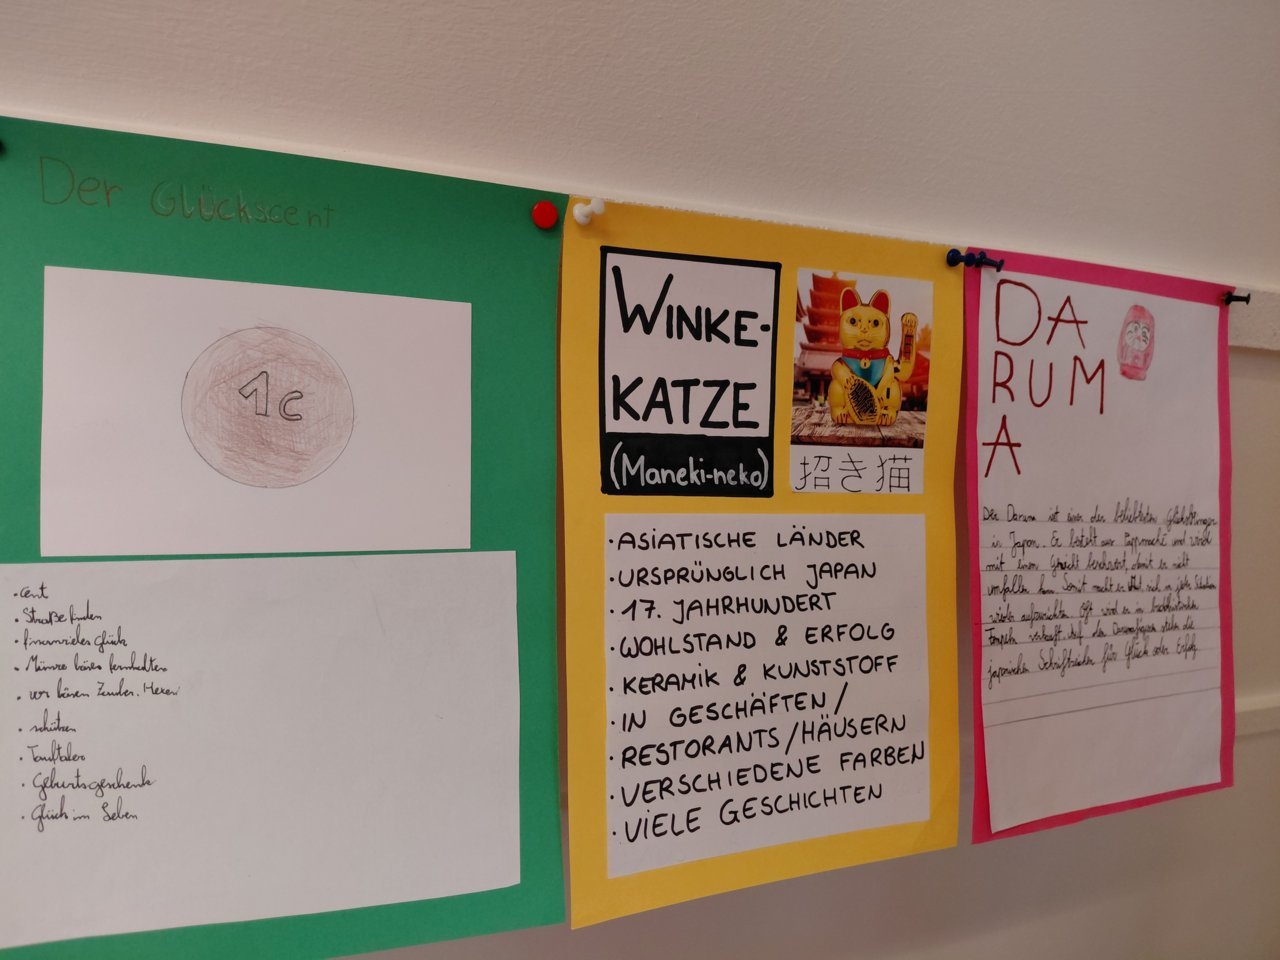 Der Glückscent
1c
• Cent
• Straße finden
• finanzielles Glück
• Münze böses fernhalten
• vor bösen Zauber. Hexen
• schützen
• Tauftaler
• Geburtsgeschenk
• Glück im Leben
WINKE-
KATZE
(Maneki-neko)
招き猫
• ASIATISCHE LÄNDER
• URSPRÜNGLICH JAPAN
• 17. JAHRHUNDERT
• WOHLSTAND & ERFOLG
• KERAMIK & KUNSTSTOFF
• IN GESCHÄFTEN /
• RESTORANTS / HÄUSERN
• VERSCHIEDENE FARBEN
• VIELE GESCHICHTEN
DA
RUM
A
Der Daruma ist einer der beliebtesten Glücksbringer
in Japan. Er besteht aus Pappmaché und wird
mit einem Gewicht beschwert, damit er nicht
umfallen kann. Somit macht er sich in jeder Situation
wieder aufzurichten. Oft wird er in buddhistischen
Tempeln verkauft. Auf den Darumafiguren stehen die
japanischen Schriftzeichen für Glück oder Erfolg.